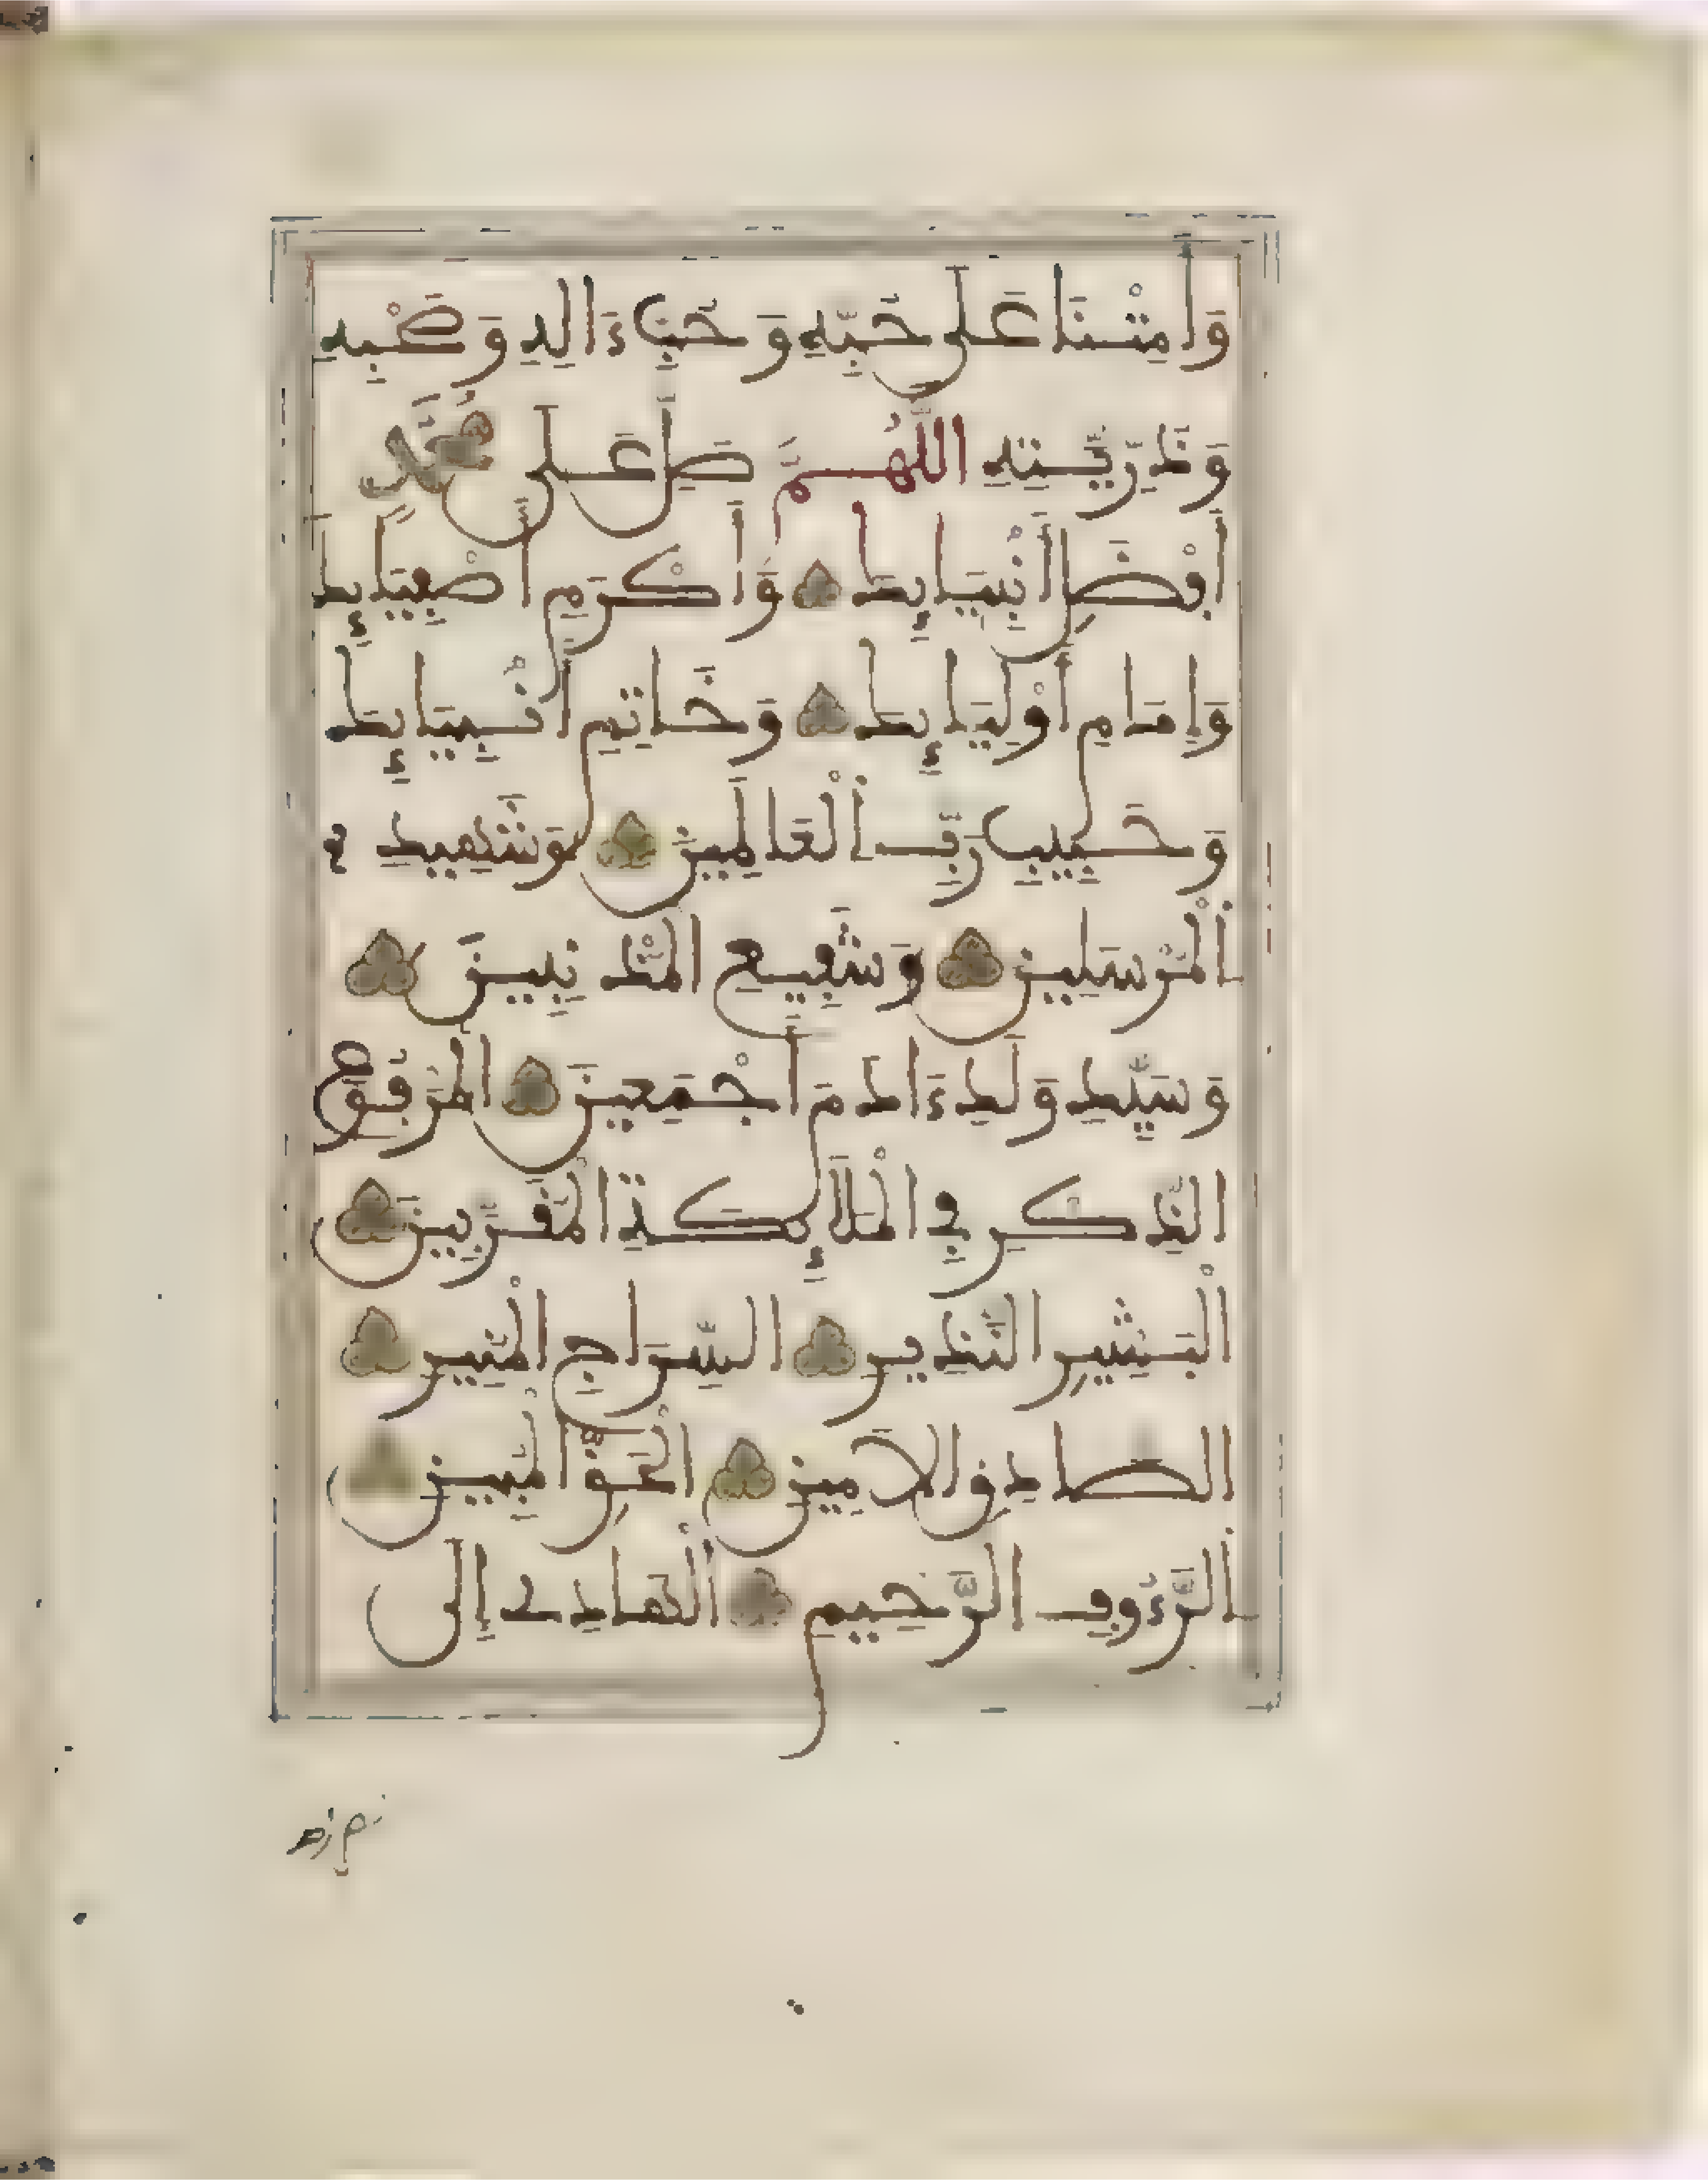 وَأَمِتْنَا عَلَى حُبِّهِ وَحُبِّ ءَالِهِ وَصَحْبِهِ
وَذُرِّيَّتِهِ اللَّهُمَّ صَلِّ عَلَى مُحَمَّدٍ
أَفْضَلِ أَنْبِيَائِكَ وَأَكْرَمِ أَصْفِيَائِكَ
وَإِمَامِ أَوْلِيَائِكَ وَخَاتِمِ أَنْبِيَائِكَ
وَحَبِيبِ رَبِّ الْعَالَمِينَ وَشَهِيدِ
الْمُرْسَلِينَ وَشَفِيعِ الْمُذْنِبِينَ
وَسَيِّدِ وَلَدِ ءَادَمَ أَجْمَعِينَ الْمَرْفُوعِ
الذِّكْرِ فِي الْمَلَائِكَةِ الْمُقَرَّبِينَ
الْبَشِيرِ النَّذِيرِ السِّرَاجِ الْمُنِيرِ
الصَّادِقِ الْأَمِينِ الْحَقِّ الْمُبِينِ
الرَّءُوفِ الرَّحِيمِ الْهَادِي إِلَى